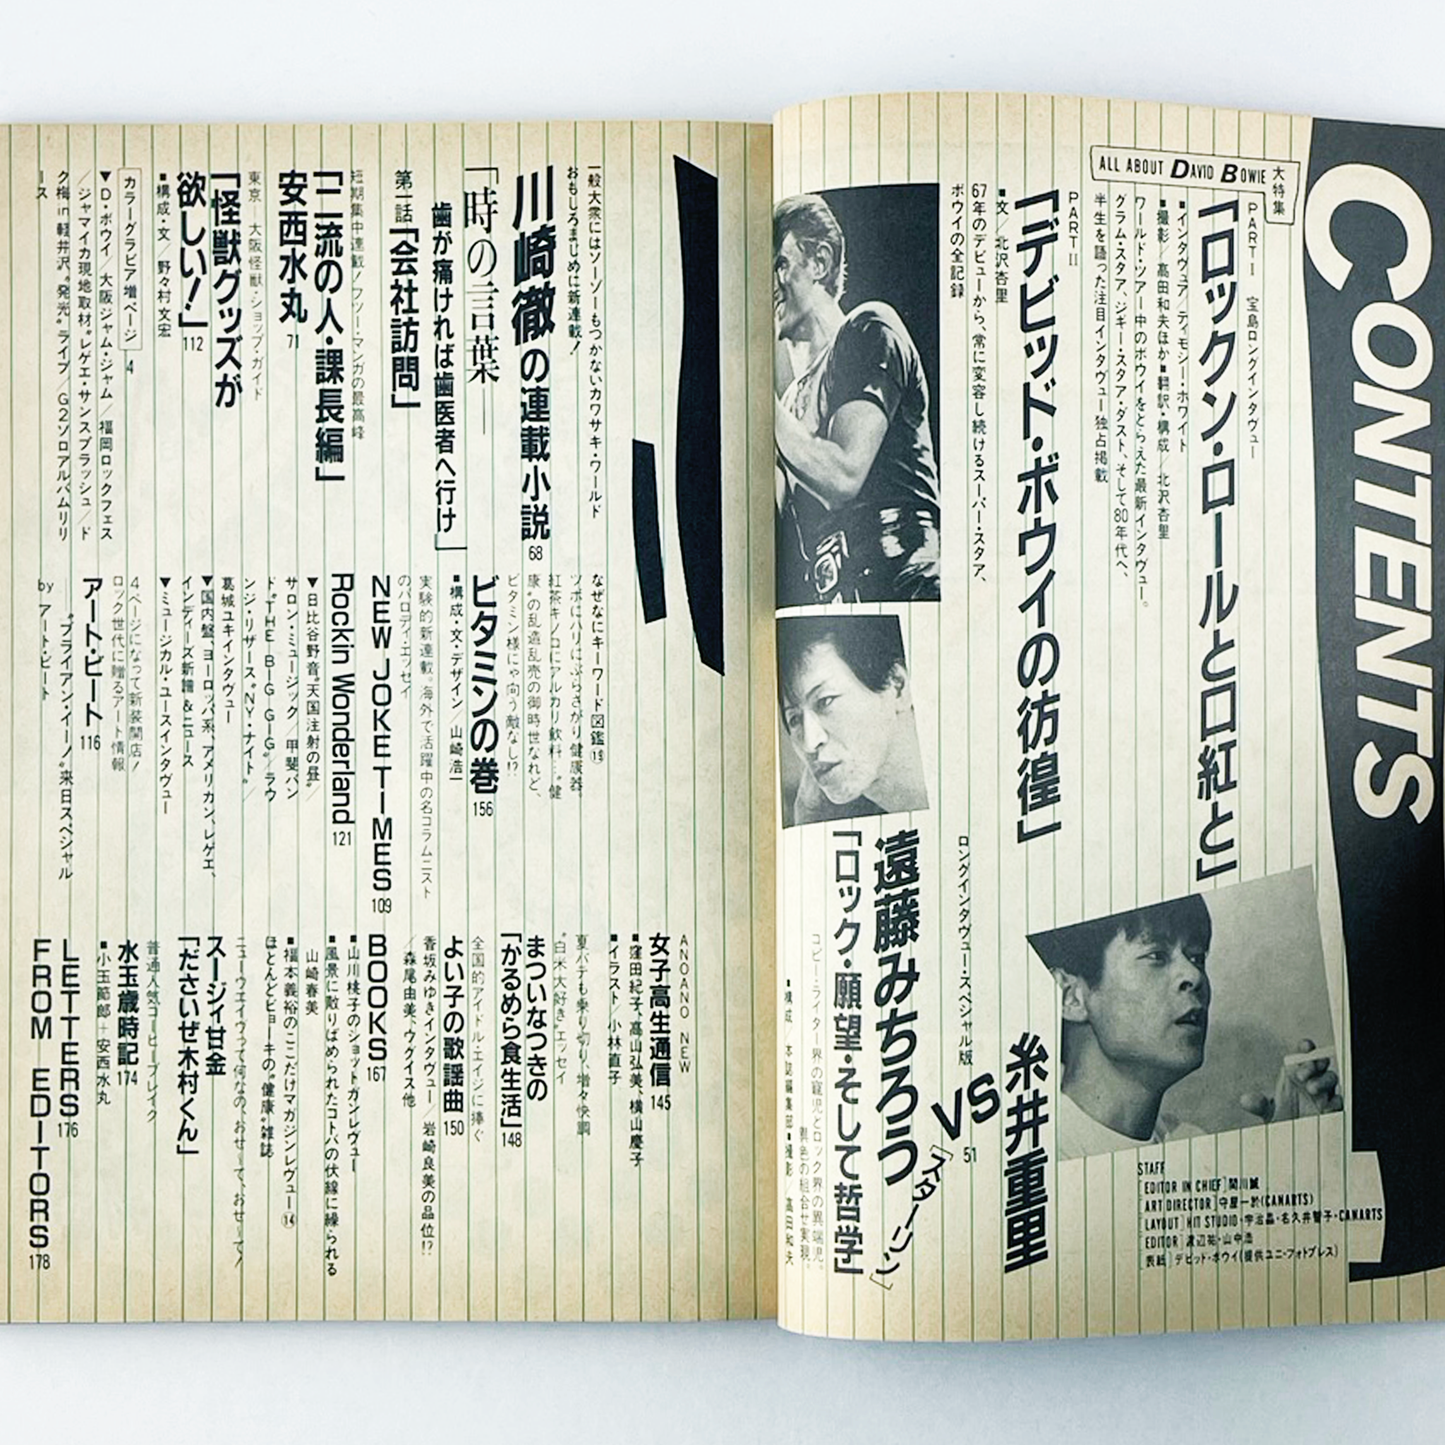 CONTENTS
大特集
ALL ABOUT DAVID BOWIE
PART I 宝島ロングインタヴュー
「ロックン・ロールと口紅と」
■インタヴュア/ティモシー・ホワイト
■撮影/高田和夫ほか■翻訳・構成/北沢杏里
ワールド・ツアー中のボウイをとらえた最新インタヴュー。
グラム・スタア、ジギー・スタア・ダスト、そして80年代へ、
半生を語った注目インタヴュー独占掲載
PART II
「デビッド・ボウイの彷徨」
■文/北沢杏里
67年のデビューから、常に変容し続けるスーパー・スタア、
ボウイの全記録
ロングインタヴュー・スペシャル版
糸井重里
VS
51
遠藤みちろう
[スターリン]
「ロック・願望・そして哲学」
コピー・ライター界の寵児とロック界の異端児。
異色の組合せ実現。
■構成 本誌編集部■撮影/高田和夫
STAFF
[EDITOR IN CHIEF]関川誠
[ART DIRECTOR]守屋一於(CANARTS)
[LAYOUT]HIT STUDIO・宇治晶・名久井智子・CANARTS
[EDITOR]渡辺祐・山中浩
[表紙]デビッド・ボウイ(提供ユニ・フォトプレス)
一般大衆にはソーゾーもつかないカワサキ・ワールド
おもしろまじめに新連載!
川崎徹の連載小説 68
「時の言葉―
歯が痛ければ歯医者へ行け」
第一話「会社訪問」
短期集中連載/フツー・マンガの最高峰
「二流の人・課長編」
安西水丸 71
東京―大阪怪獣・ショップ・ガイド
「怪獣グッズが
欲しい!」 112
■構成・文/野々村文宏
カラーグラビア増ページ 4
▼D・ボウイ/大阪ジャム・ジャム/福岡ロックフェス
/ジャマイカ現地取材“レゲエ・サンスプラッシュ”/ド
ク梅in軽井沢“発光”ライブ/G2ソロアルバムリリ
ース
なぜなにキーワード図鑑⑲
ツボにハリにぶらさがり健康器、
紅茶キノコにアルカリ飲料…“健
康”の乱造乱売の御時世なれど、
ビタミン様にゃ向う敵なし!?
ビタミンの巻 156
■構成・文・デザイン/山崎浩一
実験的新連載。海外で活躍中の名コラムニスト
のパロディ・エッセイ
NEW JOKE TIMES 109
Rockin Wonderland 121
▼日比谷野音“天国注射の昼”/
サロン・ミュージック/甲斐バン
ド“THE BIG GIG”/ラウ
ンジ・リザース“NY・ナイト”/
葛城ユキインタヴュー
▼国内盤、ヨーロッパ系、アメリカン、レゲエ、
インディーズ新譜&ニュース
▼ミュージカル・ユースインタヴュー
4ページになって新装開店!
ロック世代に贈るアート情報
アート・ビート 116
―“ブライアン・イーノ”来日スペシャル
by アート・ビート
ANOANO NEW
女子高生通信 145
■窪田紀子、高山弘美、横山慶子
■イラスト/小林直子
夏バテも乗り切り、増々快調
“白米大好き”エッセイ
まついなつきの
「かるめら食生活」 148
全国的アイドル・エイジに捧ぐ
よい子の歌謡曲 150
香坂みゆきインタヴュー/岩崎良美の品位!?
/森尾由美、ウグイス他
BOOKS 167
■山川桃子のショットガンレヴュー
■風景に散りばめられたコトバの伏線に繰られる
山崎春美
■福本義裕のここだけマガジンレヴュー⑭
ほとんどビョーキの“健康”雑誌
ニューウエイヴって何なの、おせーて、おせーて!
スージィ甘金
「ださいぜ木村くん」
普通人気コーヒーブレイク
水玉歳時記 174
■小玉節郎+安西水丸
LETTERS 176
FROM EDITORS 178